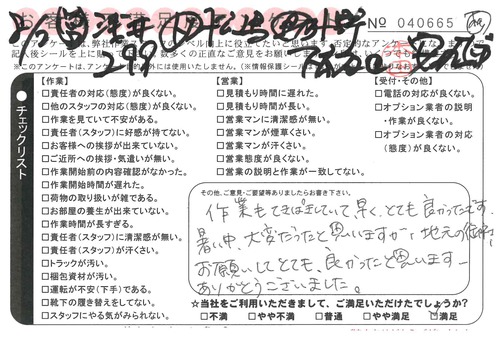 № 040665
このアンケートは、弊社作業
記入後シールを上に
※このアンケートは、アンケート以外には使用いたしません。(※情報保護シール
【作業】
□責任者の対応(態度)が良くない。
□他のスタッフの対応が良くない。
□作業を見ていて不安がある。
□責任者(スタッフ)に好感が持てない。
□お客様への挨拶が出来ていない。
□ご近所への挨拶・気遣いが無い。
□作業開始前の内容確認がなかった。
□作業開始時間が遅れた。
□荷物の取り扱いが雑である。
□お部屋の養生が出来ていない。
□作業時間が長すぎる。
□責任者(スタッフ)に清潔感が無い。
□責任者(スタッフ)が汗くさい。
□トラックが汚い。
□梱包資材が汚い。
□運転が不安(下手)である。
□靴下の履き替えをしてない。
□スタッフにやる気がみられない。
チェックリスト
【営業】
□見積もり時間に遅れた。
□見積もり時間が長い。
□営業マンに清潔感が無い。
□営業マンが煙草くさい。
□営業マンが汗くさい。
□営業態度が良くない。
□営業の説明と作業が一致してない。
【受付・その他】
□電話の対応が良くない。
□オプション業者の説明
・作業が良くない。
□オプション業者の対応
(態度)が良くない。
その他、ご意見・ご要望等ありましたらお書き下さい。
作業もてきぱきしていて、早く、とても良かったです。
暑い中、大変だったと思いますが、地元の
お願いしてとても、良かったと思います。
ありがとうございました。
☆当社をご利用いただきまして、ご満足いただけでしょうか?
□不満 □やや不満 □普通 □やや満足 ☑満足